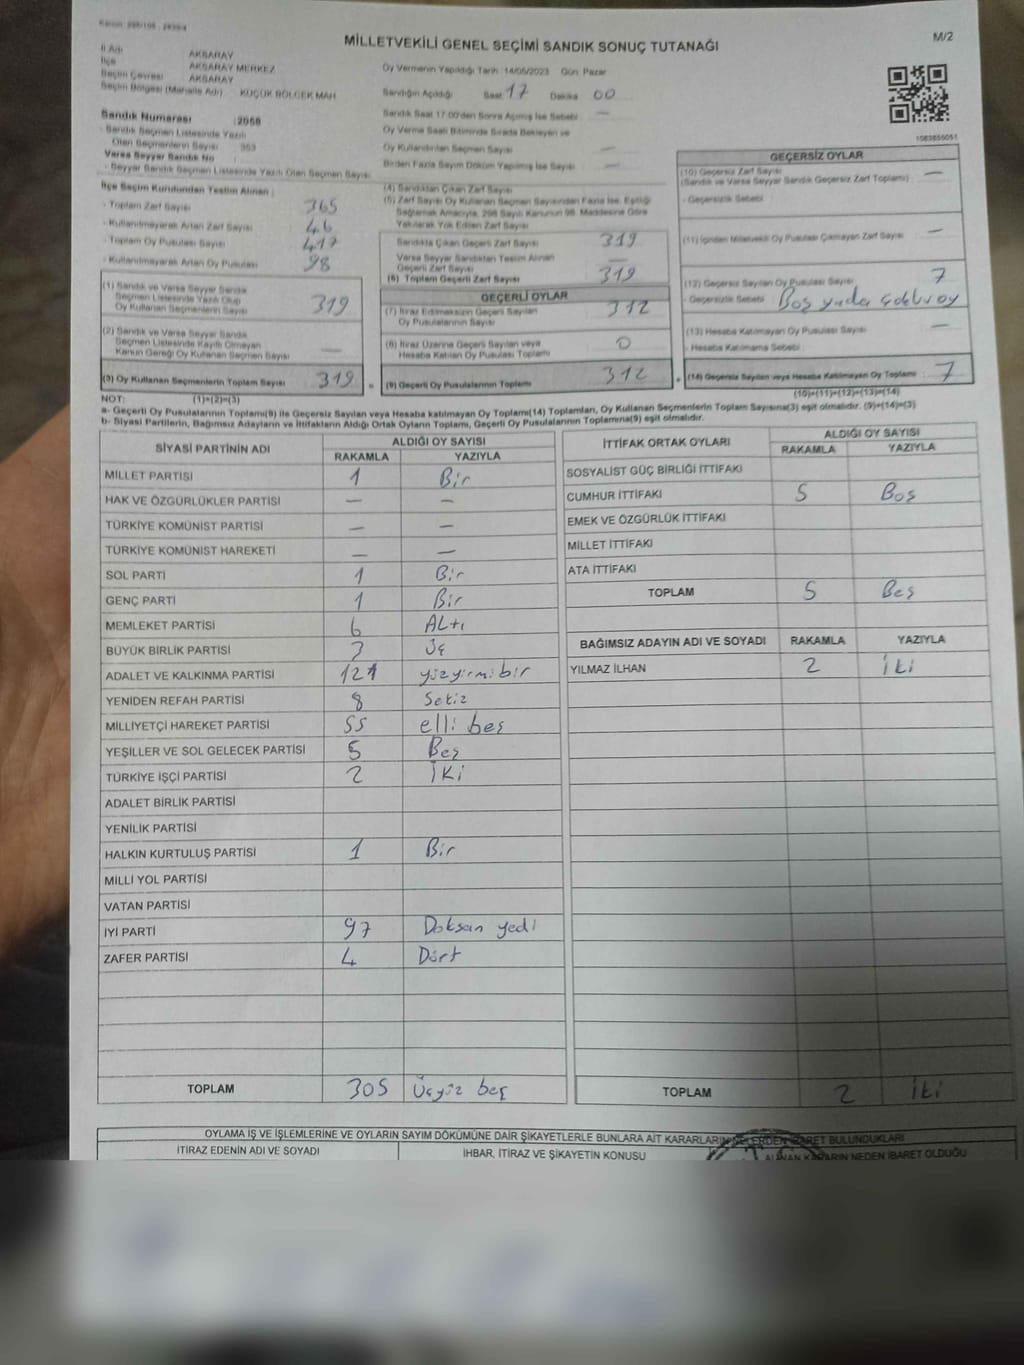 MİLLETVEKİLİ GENEL SEÇİMİ SANDIK SONUÇ TUTANAĞI
M/2
İl Adı AKSARAY
İlçe AKSARAY MERKEZ
Seçim Çevresi AKSARAY
Seçim Bölgesi (Mahalle Adı) KÜÇÜK BÖLCEK MAH
Sandık Numarası : 2068
- Sandık Seçmen Listesinde Yazılı
Olan Seçmenlerin Sayısı : 353
Varsa Seyyar Sandık No
- Seyyar Sandık Seçmen Listesinde Yazılı Olan Seçmen Sayısı
Oy Vermenin Yapıldığı Tarih :14/05/2023 Gün: Pazar
Sandığın Açıldığı Saat 17 Dakika 00
Sandık Saat 17:00'den Sonra Açılmış İse Sebebi —
Oy Verme Saati Bitiminde Sırada Bekleyen ve
Oy Kullandırılan Seçmen Sayısı —
Birden Fazla Sayım Döküm Yapılmış İse Sayısı —
1083855051
İlçe Seçim Kurulundan Teslim Alınan :
- Toplam Zarf Sayısı 365
- Kullanılmayarak Artan Zarf Sayısı 46
- Toplam Oy Pusulası Sayısı 417
- Kullanılmayarak Artan Oy Pusulası 98
(1) Sandık ve Varsa Seyyar Sandık
Seçmen Listesinde Yazılı Olup
Oy Kullanan Seçmenlerin Sayısı 319
(2) Sandık ve Varsa Seyyar Sandık
Seçmen Listesinde Kayıtlı Olmayan
Kanun Gereği Oy Kullanan Seçmen Sayısı —
(3) Oy Kullanan Seçmenlerin Toplam Sayısı 319
(4) Sandıktan Çıkan Zarf Sayısı
(5) Zarf Sayısı Oy Kullanan Seçmen Sayısından Fazla İse, Eşitliği
Sağlamak Amacıyla, 298 Sayılı Kanunun 98. Maddesine Göre
Yakılarak Yok Edilen Zarf Sayısı
Sandıkta Çıkan Geçerli Zarf Sayısı 319
Varsa Seyyar Sandıktan Teslim Alınan
Geçerli Zarf Sayısı —
(6) Toplam Geçerli Zarf Sayısı 319
GEÇERLİ OYLAR
(7) İtiraz Edilmeksizin Geçerli Sayılan
Oy Pusulalarının Sayısı 312
(8) İtiraz Üzerine Geçerli Sayılan veya
Hesaba Katılan Oy Pusulası Toplamı 0
(9) Geçerli Oy Pusulalarının Toplamı 312
GEÇERSİZ OYLAR
(10) Geçersiz Zarf Sayısı —
(Sandık ve Varsa Seyyar Sandık Geçersiz Zarf Toplamı)
- Geçersizlik Sebebi :
(11) İçinden Milletvekili Oy Pusulası Çıkmayan Zarf Sayısı —
(12) Geçersiz Sayılan Oy Pusulası Sayısı 7
- Geçersizlik Sebebi : Boş yada
(13) Hesaba Katılmayan Oy Pusulası Sayısı —
- Hesaba Katılmama Sebebi :
(14) Geçersiz Sayılan veya Hesaba Katılmayan Oy Toplamı 7
NOT: (1)+(2)=(3)
(10)+(11)+(12)+(13)=(14)
a- Geçerli Oy Pusulalarının Toplamı(9) ile Geçersiz Sayılan veya Hesaba katılmayan Oy Toplamı(14) Toplamları, Oy Kullanan Seçmenlerin Toplam Sayısına(3) eşit olmalıdır. (9)+(14)=(3)
b- Siyasi Partilerin, Bağımsız Adayların ve İttifakların Aldığı Ortak Oyların Toplamı, Geçerli Oy Pusulalarının Toplamına(9) eşit olmalıdır.
SİYASİ PARTİNİN ADI ALDIĞI OY SAYISI
RAKAMLA YAZIYLA
MİLLET PARTİSİ 1 Bir
HAK VE ÖZGÜRLÜKLER PARTİSİ — —
TÜRKİYE KOMÜNİST PARTİSİ — —
TÜRKİYE KOMÜNİST HAREKETİ — —
SOL PARTİ 1 Bir
GENÇ PARTİ 1 Bir
MEMLEKET PARTİSİ 6 ALtı
BÜYÜK BİRLİK PARTİSİ 3 Üç
ADALET VE KALKINMA PARTİSİ 121 yüzyirmibir
YENİDEN REFAH PARTİSİ 8 Sekiz
MİLLİYETÇİ HAREKET PARTİSİ 55 elli beş
YEŞİLLER VE SOL GELECEK PARTİSİ 5 Beş
TÜRKİYE İŞÇİ PARTİSİ 2 İki
ADALET BİRLİK PARTİSİ
YENİLİK PARTİSİ
HALKIN KURTULUŞ PARTİSİ 1 Bir
MİLLİ YOL PARTİSİ
VATAN PARTİSİ
İYİ PARTİ 97 Doksan yedi
ZAFER PARTİSİ 4 Dört
TOPLAM 305 Üçyüz beş
İTTİFAK ORTAK OYLARI ALDIĞI OY SAYISI
RAKAMLA YAZIYLA
SOSYALİST GÜÇ BİRLİĞİ İTTİFAKI
CUMHUR İTTİFAKI 5 Beş
EMEK VE ÖZGÜRLÜK İTTİFAKI
MİLLET İTTİFAKI
ATA İTTİFAKI
TOPLAM 5 Beş
BAĞIMSIZ ADAYIN ADI VE SOYADI RAKAMLA YAZIYLA
YILMAZ İLHAN 2 İki
TOPLAM 2 İki
OYLAMA İŞ VE İŞLEMLERİNE VE OYLARIN SAYIM DÖKÜMÜNE DAİR ŞİKAYETLERLE BUNLARA AİT KARARLARIN NELERDEN İBARET BULUNDUKLARI
İTİRAZ EDENİN ADI VE SOYADI İHBAR, İTİRAZ VE ŞİKAYETİN KONUSU ALINAN KARARIN NEDEN İBARET OLDUĞU